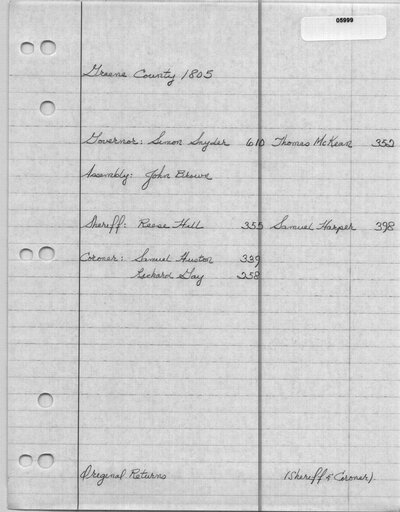 05999
Greene County 1805
Governor: Simon Snyder 610 Thomas McKean 352
Assembly: John Brown
Sheriff: Reese Hill 355 Samuel Harper 398
Coroner: Samuel Huston 339
Richard Gay 258
Original Returns (Sheriff & Coroner)